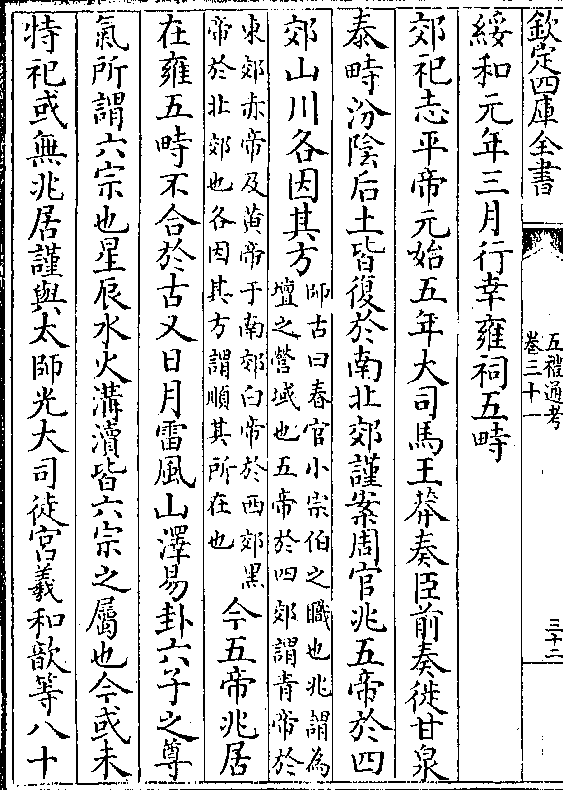 欽定四庫全書
五禮通考
卷三十一
三十二
綏和元年三月行幸雍祠五畤
郊祀志平帝元始五年大司馬王莽奏臣前奏徙甘泉
泰畤汾陰后土皆復於南北郊謹案周官兆五帝於四
郊山川各因其方
師古曰春官小宗伯之職也兆謂為
壇之營域也五帝於四郊謂青帝於
東郊赤帝及黄帝于南郊白帝於西郊黑
帝於北郊也各因其方謂順其所在也
今五帝兆居
在雍五畤不合於古又日月雷風山澤易卦六子之尊
氣所謂六宗也星辰水火溝瀆皆六宗之屬也今或未
特祀或無兆居謹與太師光大司徒宫羲和歆等八十